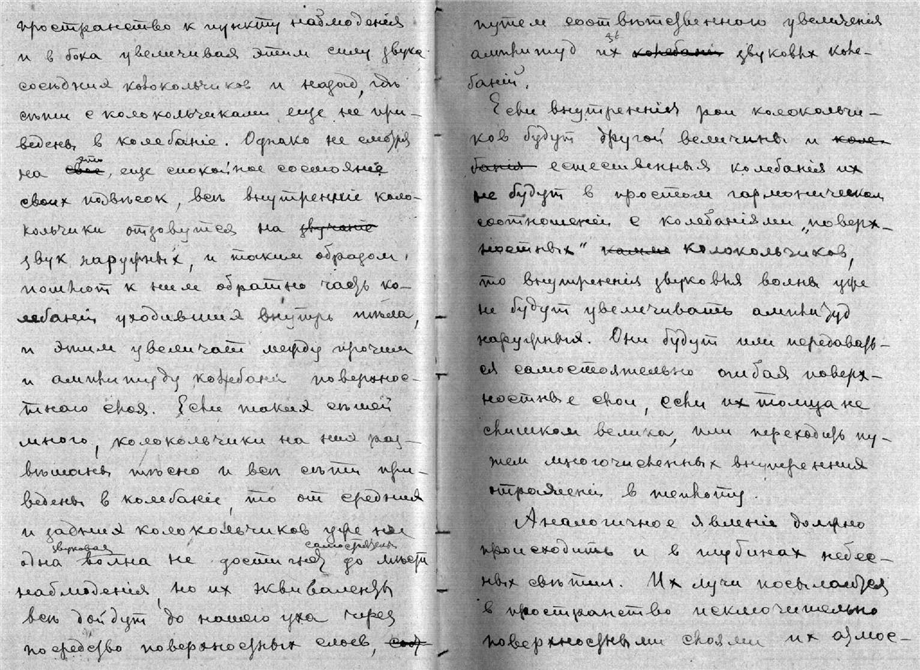 пространство к пункту наблюденія
и в бока увеличивая этим силу звука
сосѣдних колокольчиков и назад, гдѣ
сѣти с колокольчиками еще не при-
ведены в колебаніе. Однако не смотря
на это, еще спокойное состояніе
своих подвѣсок, всѣ внутренніе коло-
кольчики отзовутся на
звук наружных, и таким образом,
пошлют к ним обратно часть ко-
лебаній уходивших внутрь тѣла,
и этим увеличат между прочим
и амплитуду колебанія поверхнос-
тного слоя. Если таких сѣтей
много, колокольчики на них раз-
вѣшаны тѣсно и всѣ сѣти при-
ведены в колебаніе, то от средних
и задних колокольчиков уже ни
одна звуковая волна не достигнет самостоятельно до мѣста
наблюденія, но их эквиваленты
всѣ дойдут до нашего уха через
посредство поверхностных слоев,
путем соотвѣтственного увеличенія
амплитуд их звуковых коле-
баній.
Если внутренніе рои колокольчи-
ков будут другой величины и коле-
банія естественныя колебанія их
не будут в простом гармоническом
соотношеніи с колебаніями „поверх-
ностных" колокольчиков,
то внутреннія звуковыя волны уже
не будут увеличивать амплитуд
наружных. Они будут или передавать-
ся самостоятельно огибая поверх-
ностные слои, если их толща не
слишком велика, или переходить пу-
тем многочисленных внутренних
отраженій в теплоту.
Аналогичное явленіе должно
происходить и в глубинах небес-
ных свѣтил. Их лучи посылаются
в пространство исключительно
поверхностными слоями их атмос-